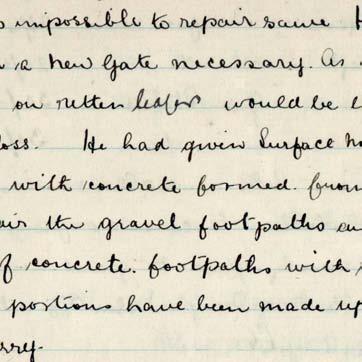 impossible to repair same
a new Gate necessary. As
on rotten would be
loss. He had given Surface
with concrete formed.
the gravel footpaths
of concrete. footpaths with
portions have been made up